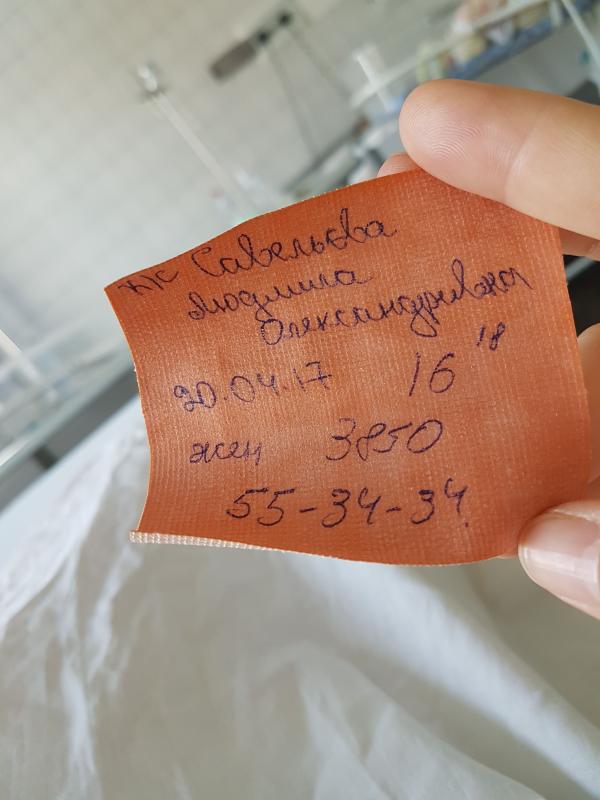 Савельєва
Людмила
Олександрівна
20.04.17 16 18
жен 3850
55-34-34